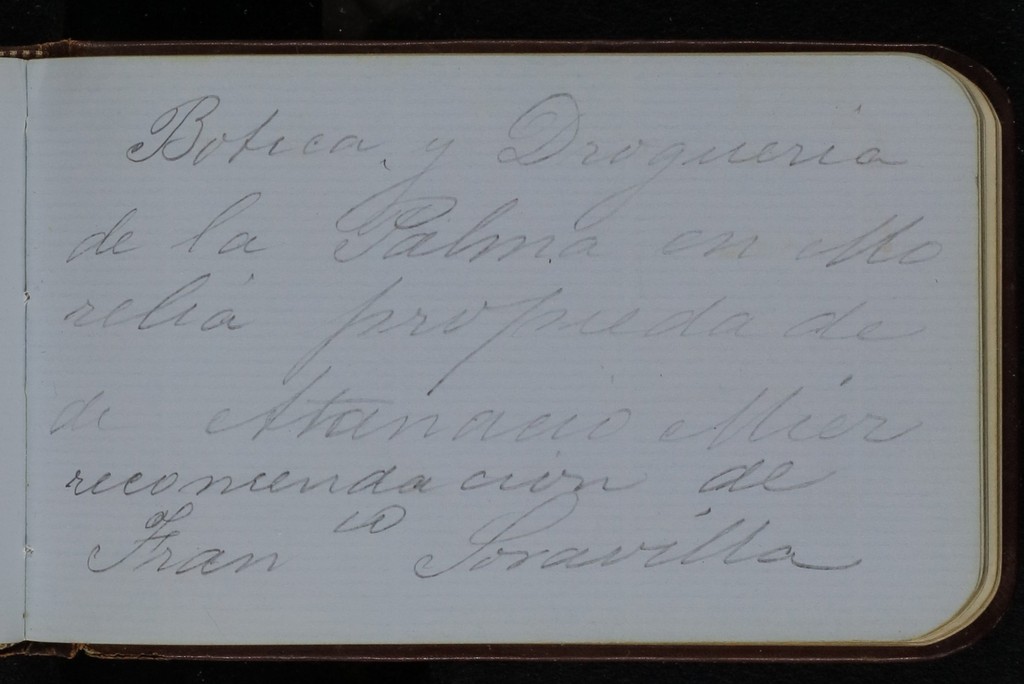 Botica y Drogueria
de la Palma en Mo
relia propieda de
de Atanacio Mier
recomendacion de
Fran co Soravilla